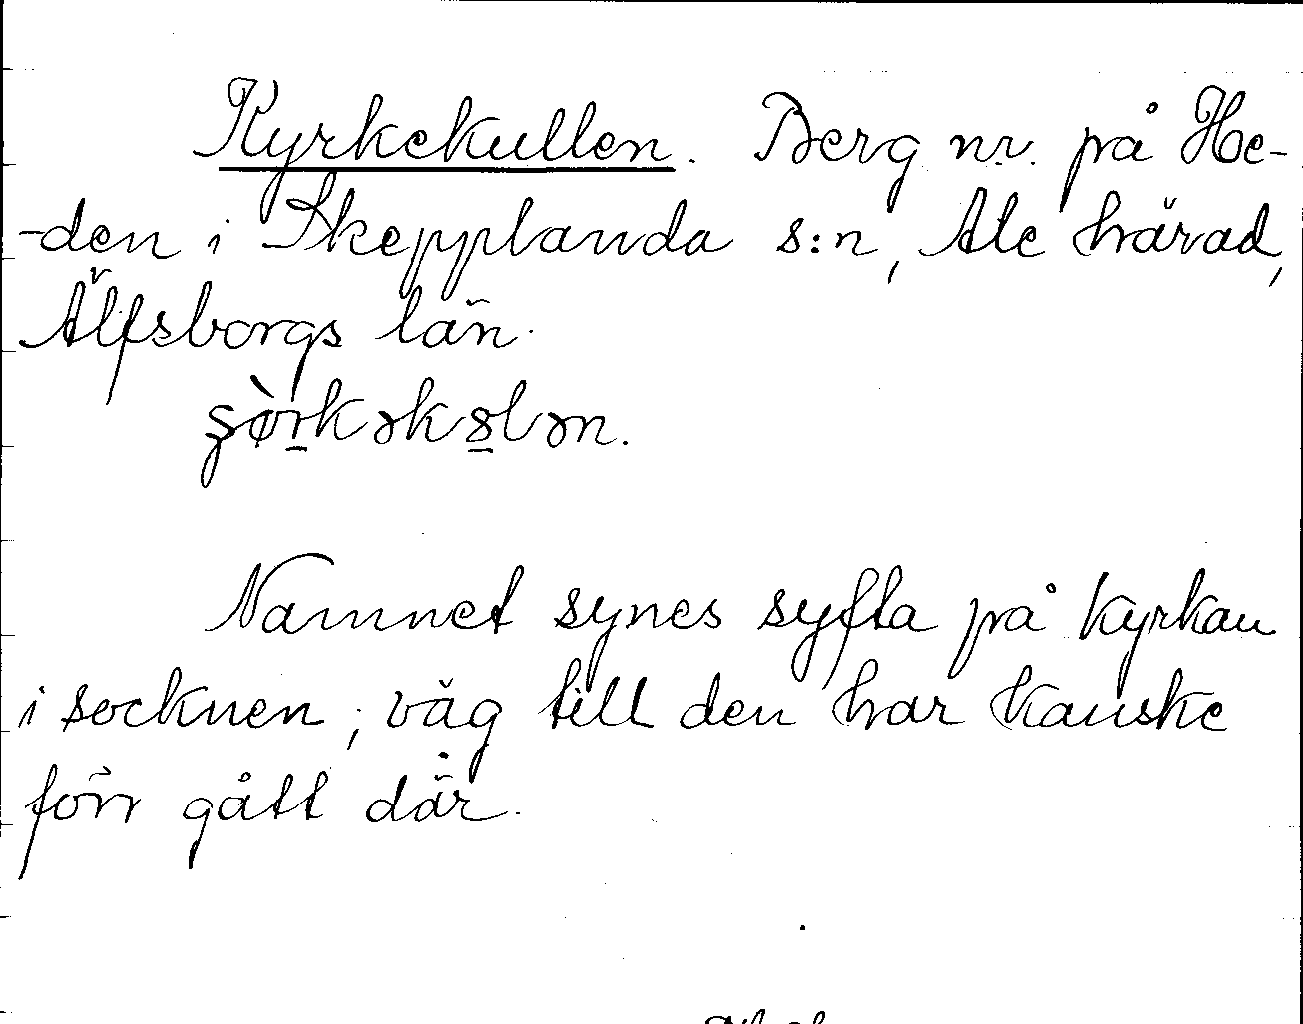 Kyrkekullen. Berg n.v. på He-
-den i Skepplanda s:n, Ale härad,
Älfsborgs län.
Namnet synes syfta på kyrkan
i socknen; väg till den har kanske
förr gått där.